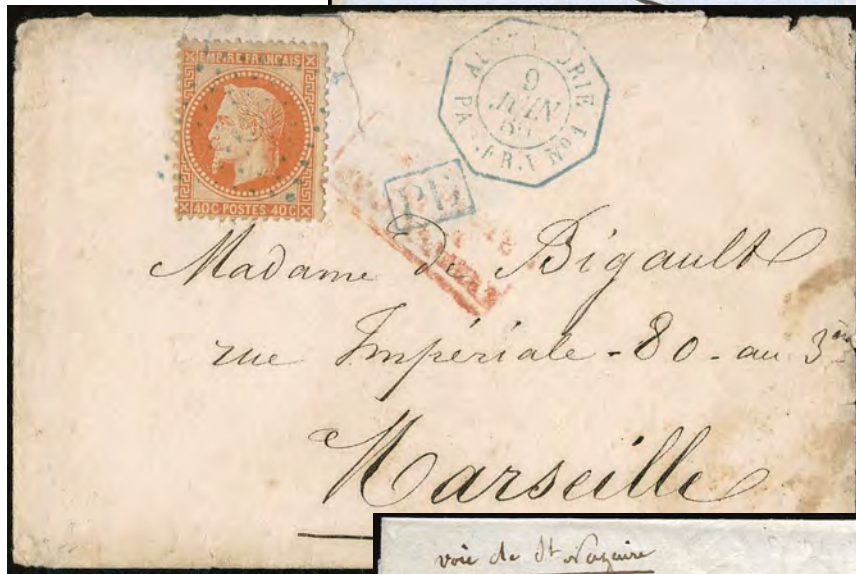 EMPIRE FRANÇAIS
40C POSTES 40C
9
JUIN
PAQ. FR. V N°1
PD
Madame de Bigault
rue Impériale - 80 - au 3me
Marseille
voie de St Nazaire